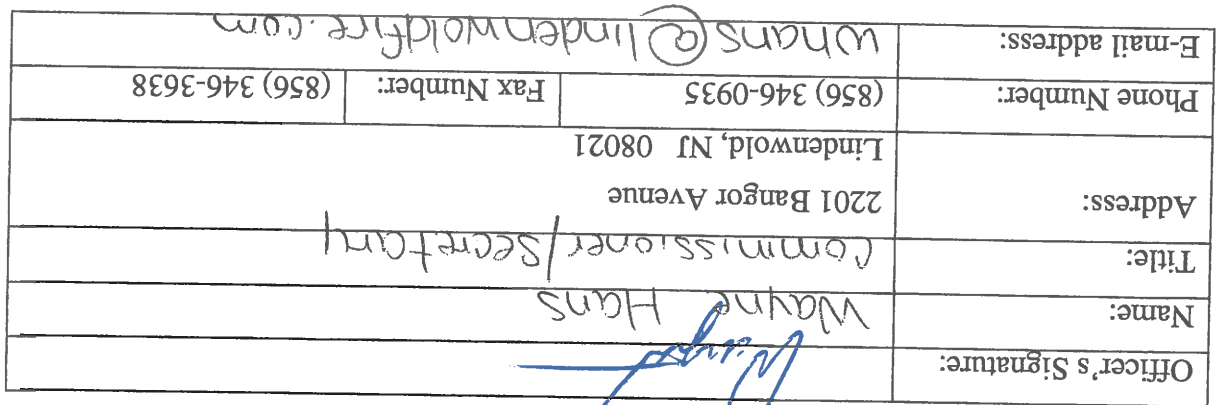 Officer's Signature:
Name: Wayne Hans
Title: Commissioner/Secretary
Address: 2201 Bangor Avenue
Lindenwold, NJ 08021
Phone Number: (856) 346-0935 Fax Number: (856) 346-3638
E-mail address: whans@lindenwoldfire.com